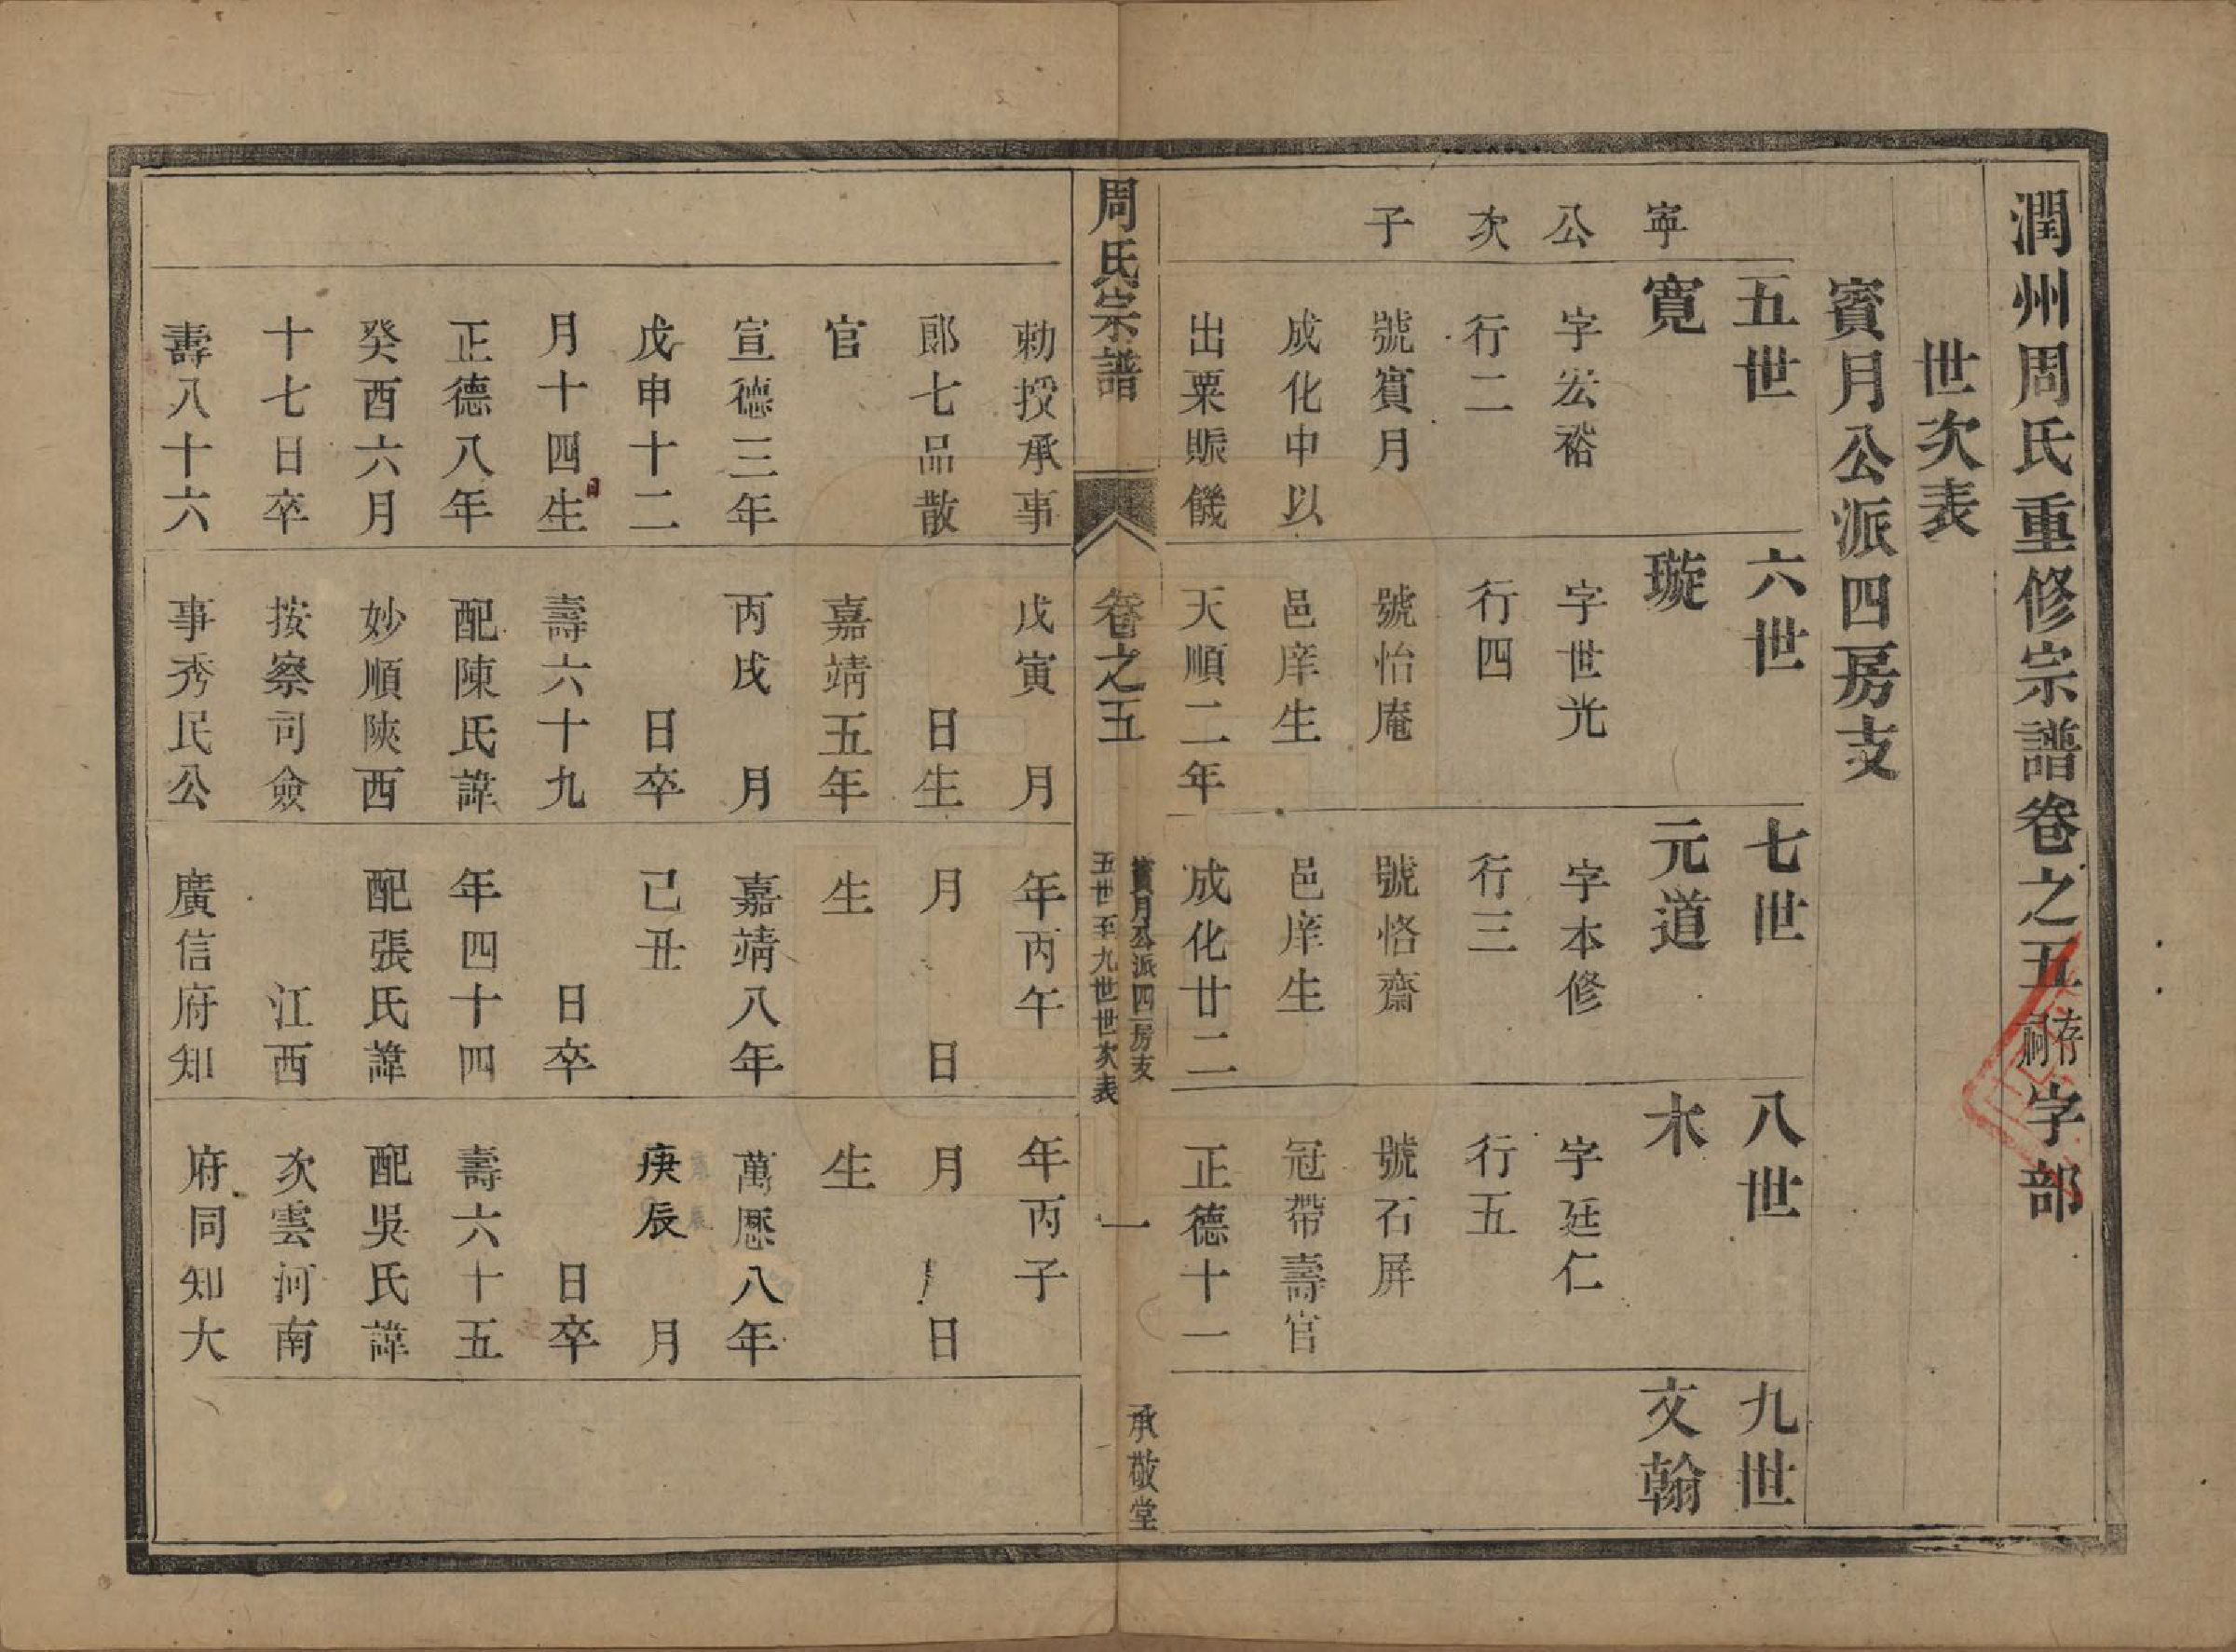 潤州周氏重修宗譜卷之五存祠字部
世次表
賓月公派四房支
五世
六世
七世
八世
九世
寧
公
次
子
寬
字宏裕
行二
號賓月
成化中以
出粟賑饑
璇
字世光
行四
號怡庵
邑庠生
天順二年
元道
字本修
行三
號恪齋
邑庠生
成化廿二
木
字廷仁
行五
號石屏
冠帶壽官
正德十一
文翰
周氏宗譜
卷之五
賓月公派四房支
五世至九世世次表
一
承敬堂
勅授承事
郎七品散
官
宣德三年
戊申十二
月十四日生
正德八年
癸酉六月
十七日卒
壽八十六
戊寅 月
日生
嘉靖五年
丙戌 月
日卒
壽六十九
配陳氏諱
妙順陝西
按察司僉
事秀民公
年丙午
月 日
生
嘉靖八年
己丑
日卒
年四十四
配張氏諱
江西
廣信府知
年丙子
月 日
生
萬厯八年
庚辰 月
日卒
壽六十五
配吳氏諱
次雲河南
府同知大